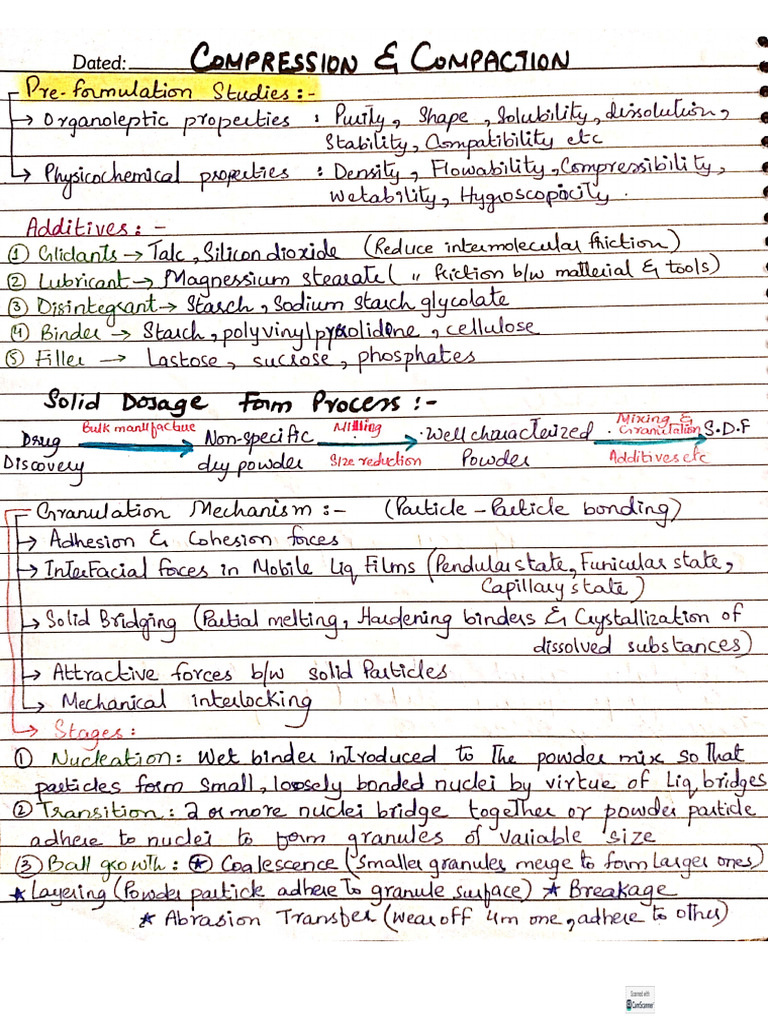 Dated: COMPRESSION & COMPACTION
Pre-formulation Studies:-
→ Organoleptic properties : Purity, Shape, Solubility, dissolution,
Stability, Compatibility etc
→ Physicochemical properties : Density, Flowability, Compressibility,
Wetability, Hygroscopicity.
Additives:-
① Glidants → Talc, Silicon dioxide (Reduce intermolecular friction)
② Lubricant → Magnessium stearate ( " friction b/w material & tools)
③ Disintegrant → Starch, Sodium starch glycolate
④ Binder → Starch, polyvinylpyrolidine, cellulose
⑤ Filler → Lastose, sucrose, phosphates
Solid Dosage Form Process:-
Bulk manufactue Milling Mixing & Granulation
Drug Non-specific Well characterized S.D.F
Discovery dry powder Size reduction Powder Additives etc
Granulation Mechanism:- (Particle-Particle bonding)
→ Adhesion & Cohesion forces
→ Interfacial forces in Mobile Liq Films (Pendular state, Funicular state,
Capillary state)
→ Solid Bridging (Partial melting, Hardening binders & Crystallization of
dissolved substances)
→ Attractive forces b/w solid Particles
→ Mechanical interlocking
→ Stages:
① Nucleation: Wet binder introduced to the powder mix so that
particles form small, loosely bonded nuclei by virtue of Liq bridges
② Transition: 2 or more nuclei bridge together or powder particle
adhere to nuclei to form granules of variable size
③ Ball growth: ★ Coalescence (Smaller granules merge to form larger ones)
★ Layering (Powder particle adhere to granule surface) ★ Breakage
★ Abrasion Transfer (wear off 4m one, adhere to other)
Scanned with
CamScanner